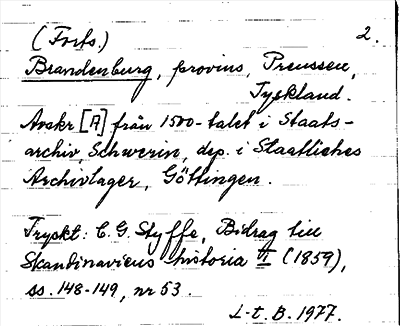 (Forts.) 2.
Brandenburg, provins, Preussen,
Tyskland.
Avskr [A] från 1500-talet i Staats-
archiv, Schwerin, dep. i Staatliches
Archivlager, Göttingen.
Tryckt: C.G. Styffe, Bidrag till
Skandinaviens historia VI (1859),
ss. 148-149, nr 53.
L-t. B. 1977.